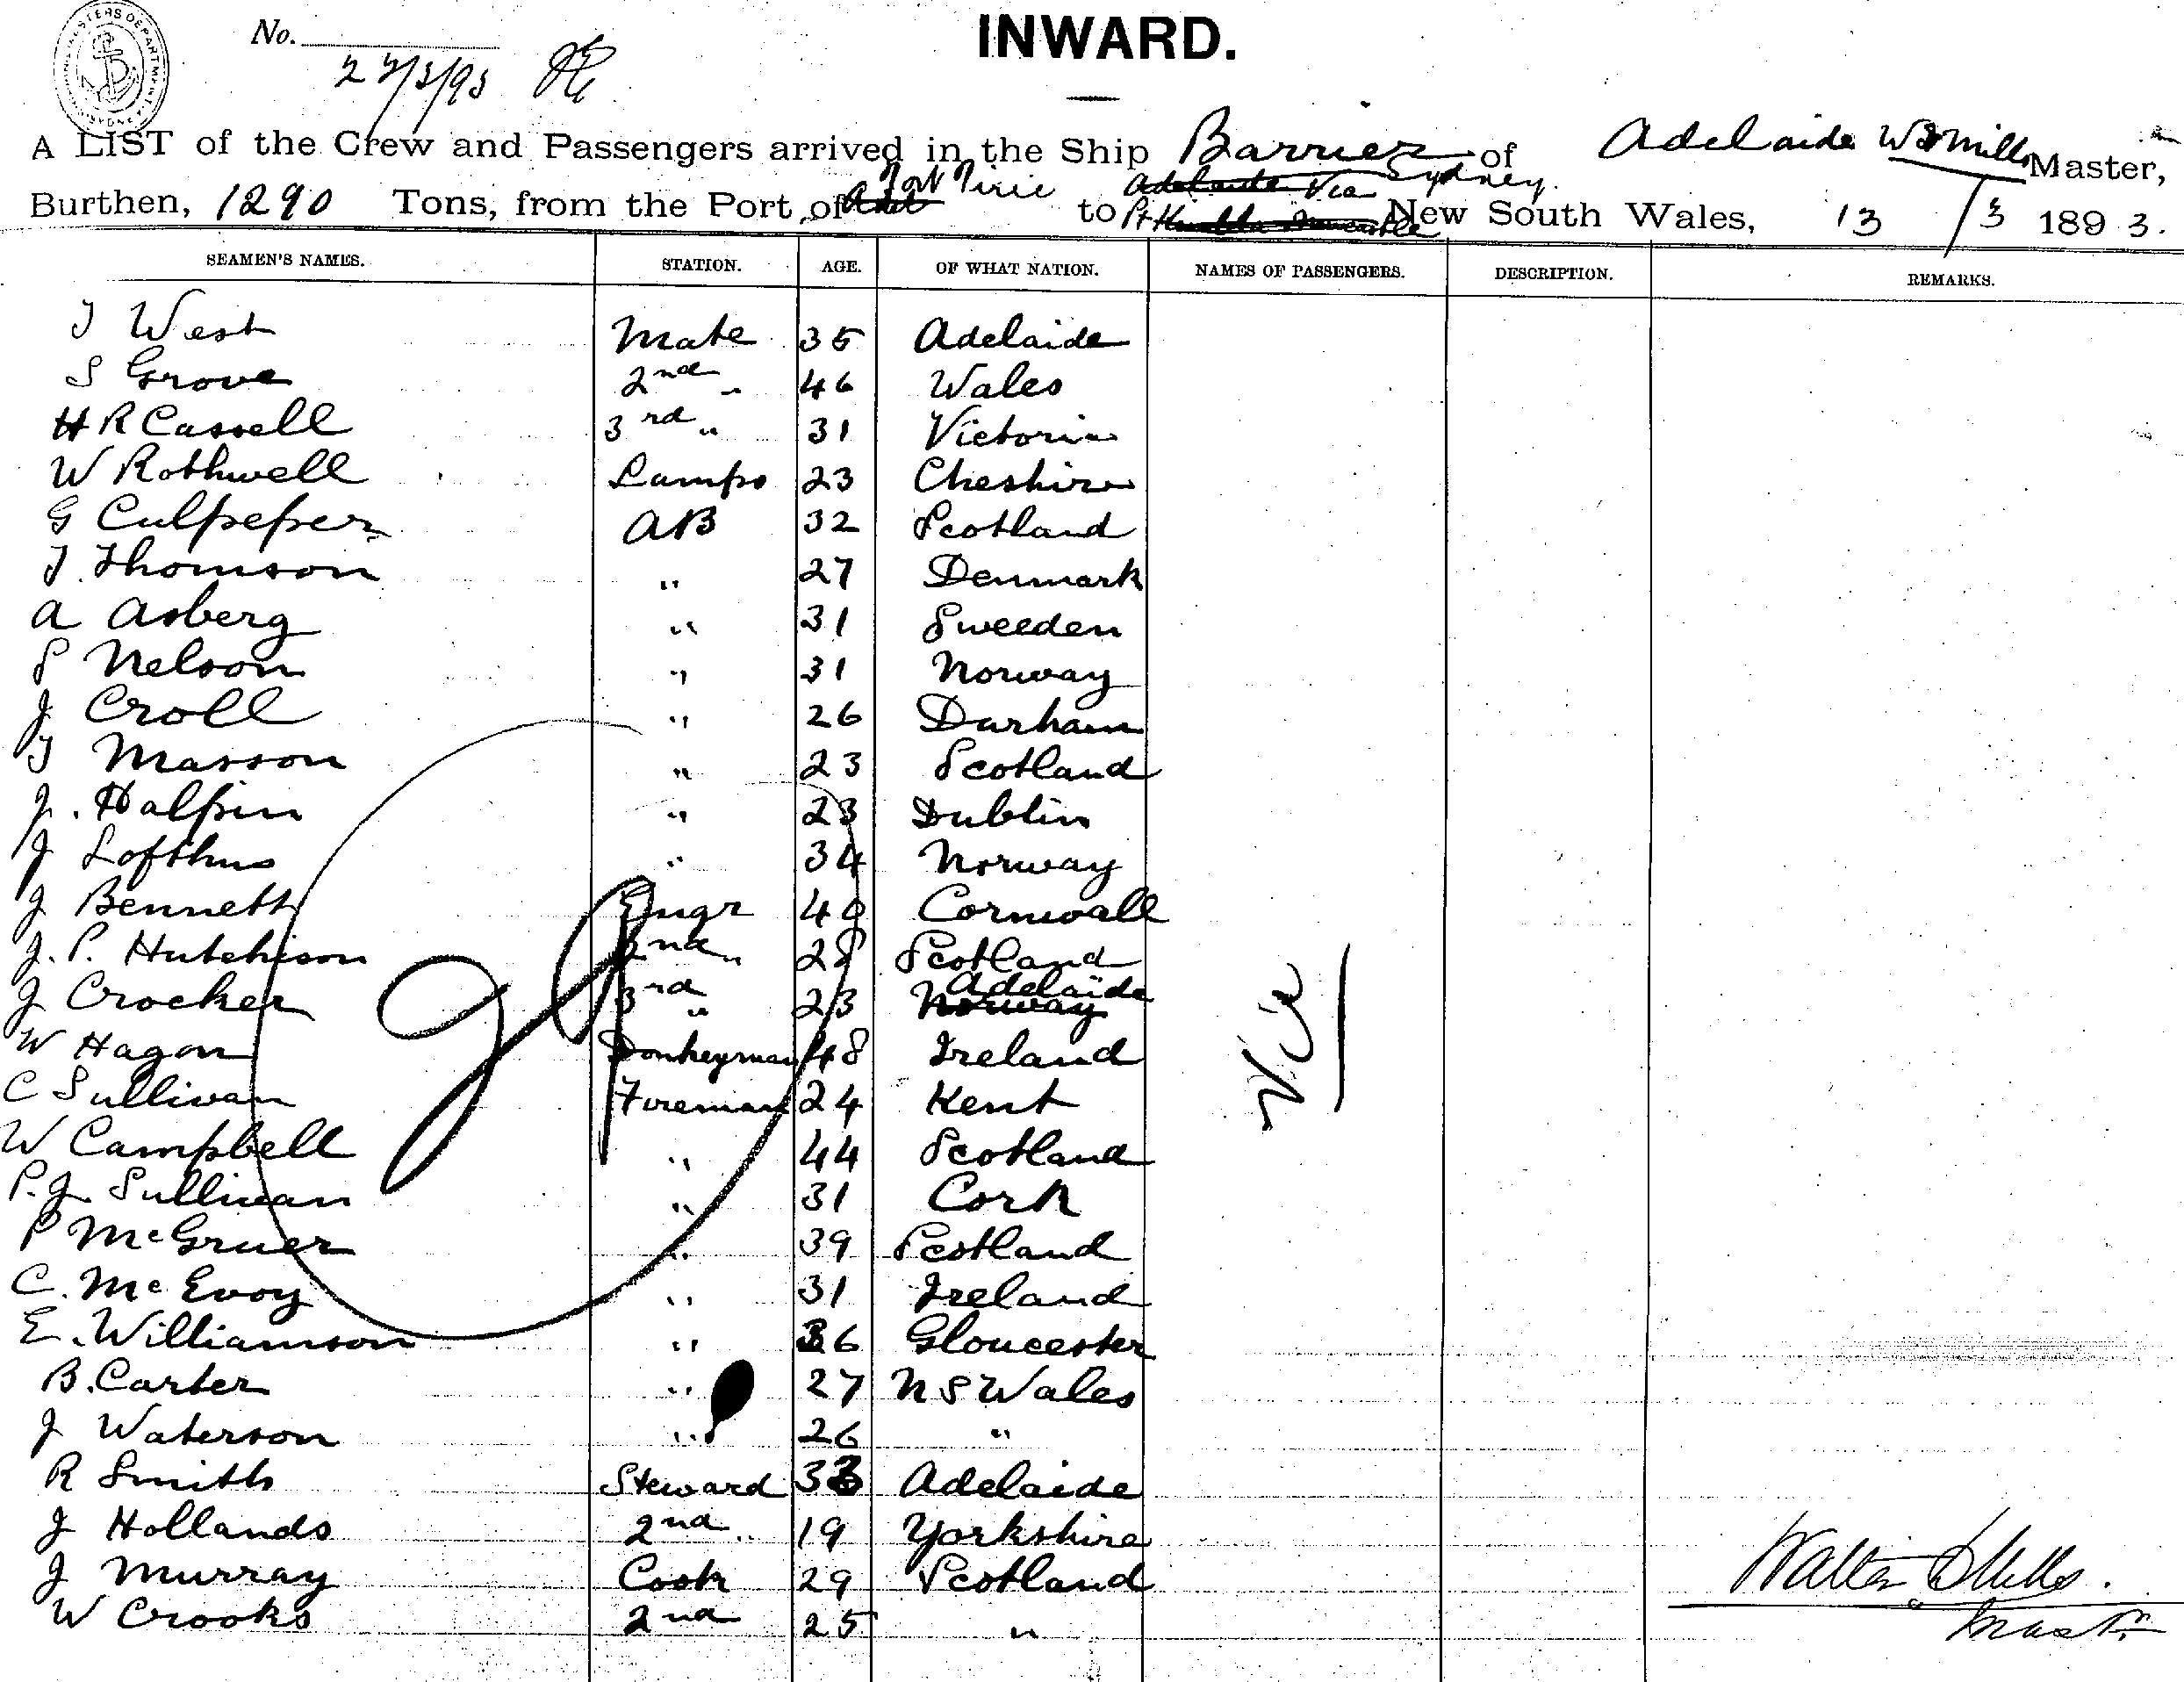 No.
INWARD.
A LIST of the Crew and Passengers arrived in the Ship Barrier of Adelaide W S Mills Master,
Burthen, 1290 Tons, from the Port of Port Pirie to Sydney. New South Wales, 13/3 1893.
SEAMEN'S NAMES. STATION. AGE. OF WHAT NATION. NAMES OF PASSENGERS. DESCRIPTION. REMARKS.
J West Mate 35 Adelaide
S Grove 2nd " 46 Wales
H R Cassell 3rd " 31 Victoria
W Rothwell Lamps 23 Cheshire
G Culpeper AB 32 Scotland
J. Thomson " 27 Denmark
A Asberg " 31 Sweeden
S Nelson " 31 Norway
J Croll " 26 Durham
J Masson " 23 Scotland
J. Halpin " 23 Dublin
J Lofthus " 34 Norway
J Bennett Engr 40 Cornwall
J. P. Hutchison 2nd " 28 Scotland
J Crocker 3rd " 23 Norway Adelaide
W Hagan Donkeyman 48 Ireland
C Sullivan Fireman 24 Kent
W Campbell " 44 Scotland
P. J. Sullivan " 31 Cork
P McGruer " 39 Scotland
C. McEvoy " 31 Ireland
E. Williamson " 36 Gloucester
B. Carter " 27 N S Wales
J Waterson " 26 "
R Smith Steward 33 Adelaide
J Hollands 2nd " 19 Yorkshire
J Murray Cook 29 Scotland
W Crooks 2nd 25 "
Walter S Mills.
Master